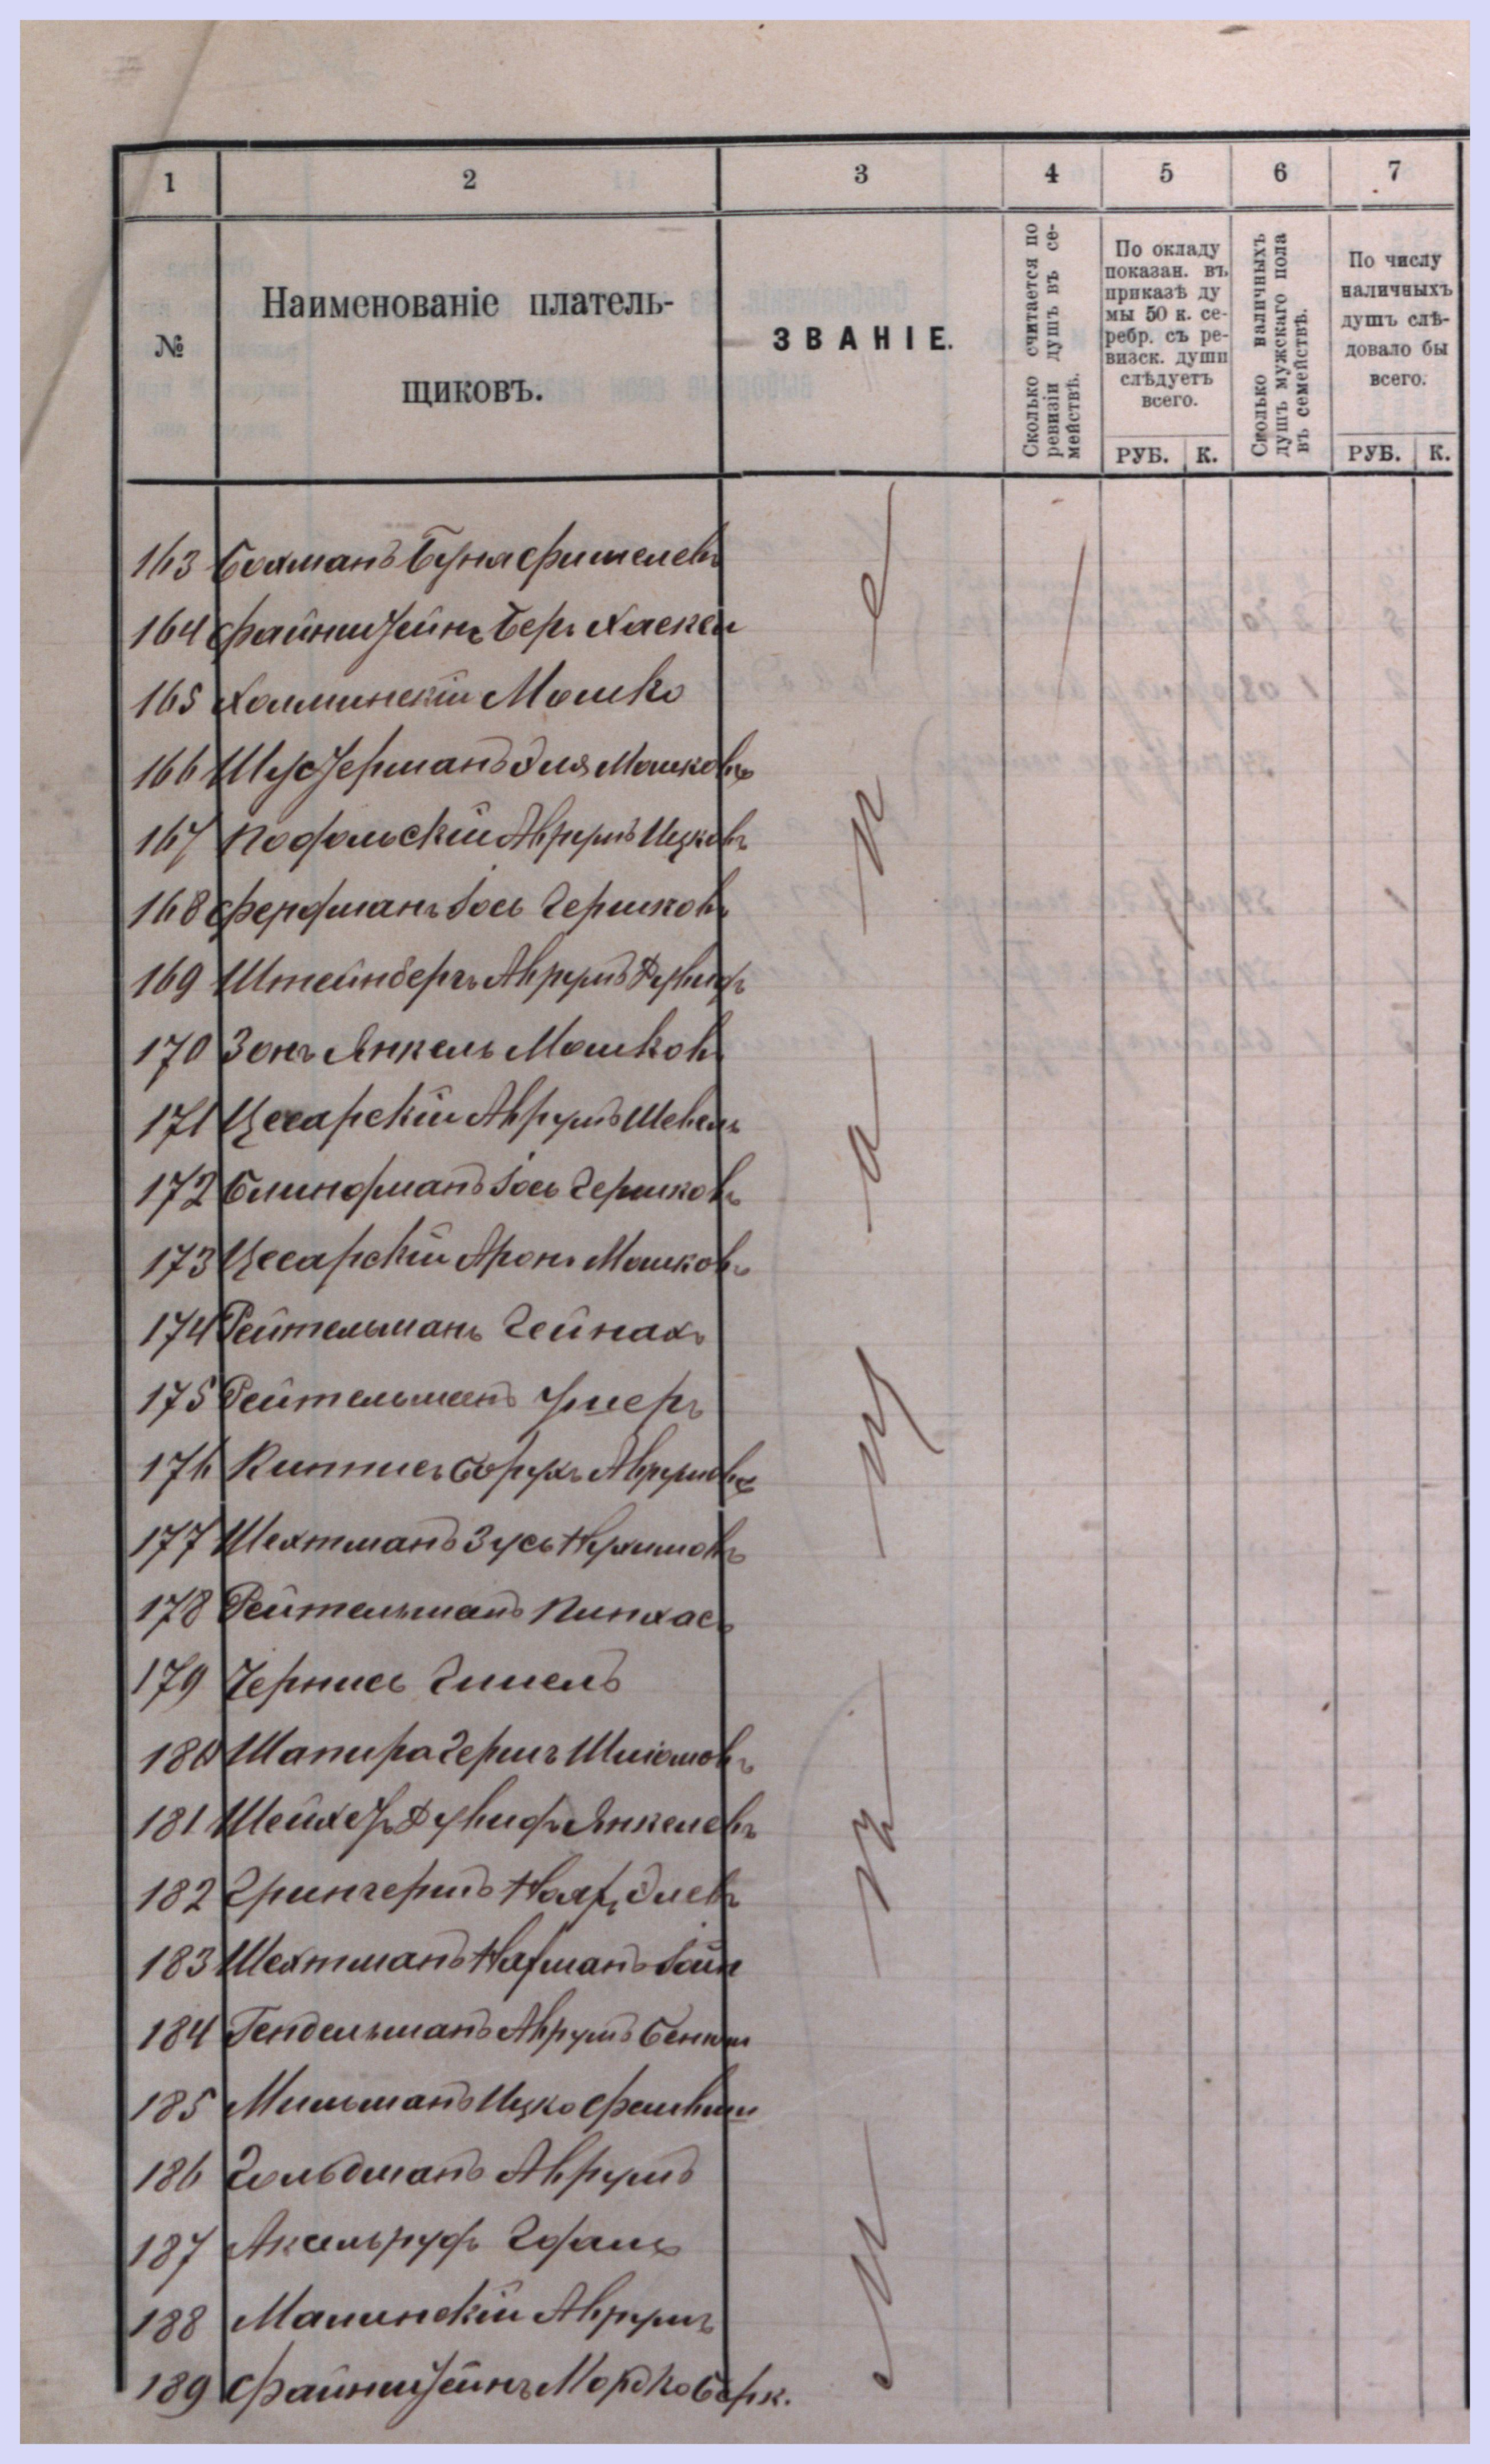 1 2 3 4 5 6 7
№
Наименованіе платель-
щиковъ.
ЗВАНІЕ.
Сколько считается по
ревизіи душъ въ се-
мействѣ.
По окладу
показан. въ
приказѣ ду
мы 50 к. се-
ребр. съ ре-
визск. души
слѣдуетъ
всего.
РУБ. К.
Сколько наличныхъ
душъ мужскаго пола
въ семействѣ.
По числу
наличныхъ
душъ слѣ-
довало бы
всего.
РУБ. К.
163 Бохманъ Буня Фишелевъ
164 Файнштейнъ Беръ Хаскел
165 Холминскій Мошко
166 Шустерманъ Эля Мошковъ
167 Подольскій Аврумъ Ицковъ
168 Фердманъ Іось Гершковъ
169 Штейнбергъ Аврумъ Дувидъ
170 Зонъ Янкель Мошковъ
171 Цесарскій Аврумъ Шевель
172 Блиндманъ Іось Гершковъ
173 Цесарскій Аронъ Мошковъ
174 Рейтельманъ Гейнахъ
175 Рейтельманъ Ушеръ
176 Китисъ Борухъ Аврумовъ
177 Шехтманъ Зусь Нухимовъ
178 Рейтельманъ Пинхасъ
179 Чернисъ Гишель
180 Шапиро Гершъ Шліомовъ
181 Шейхетъ Дувидъ Янкелевъ
182 Грингерцъ Элевъ
183 Шехтманъ Нахманъ Іойн
184 Гендельманъ Аврумъ Бенюм
185 Мильманъ Ицко Файвиш
186 Гольдманъ Аврумъ
187 Аксельрудъ Годаль
188 Малинскій Аврумъ
189 Файнштейнъ Мордко Берк.